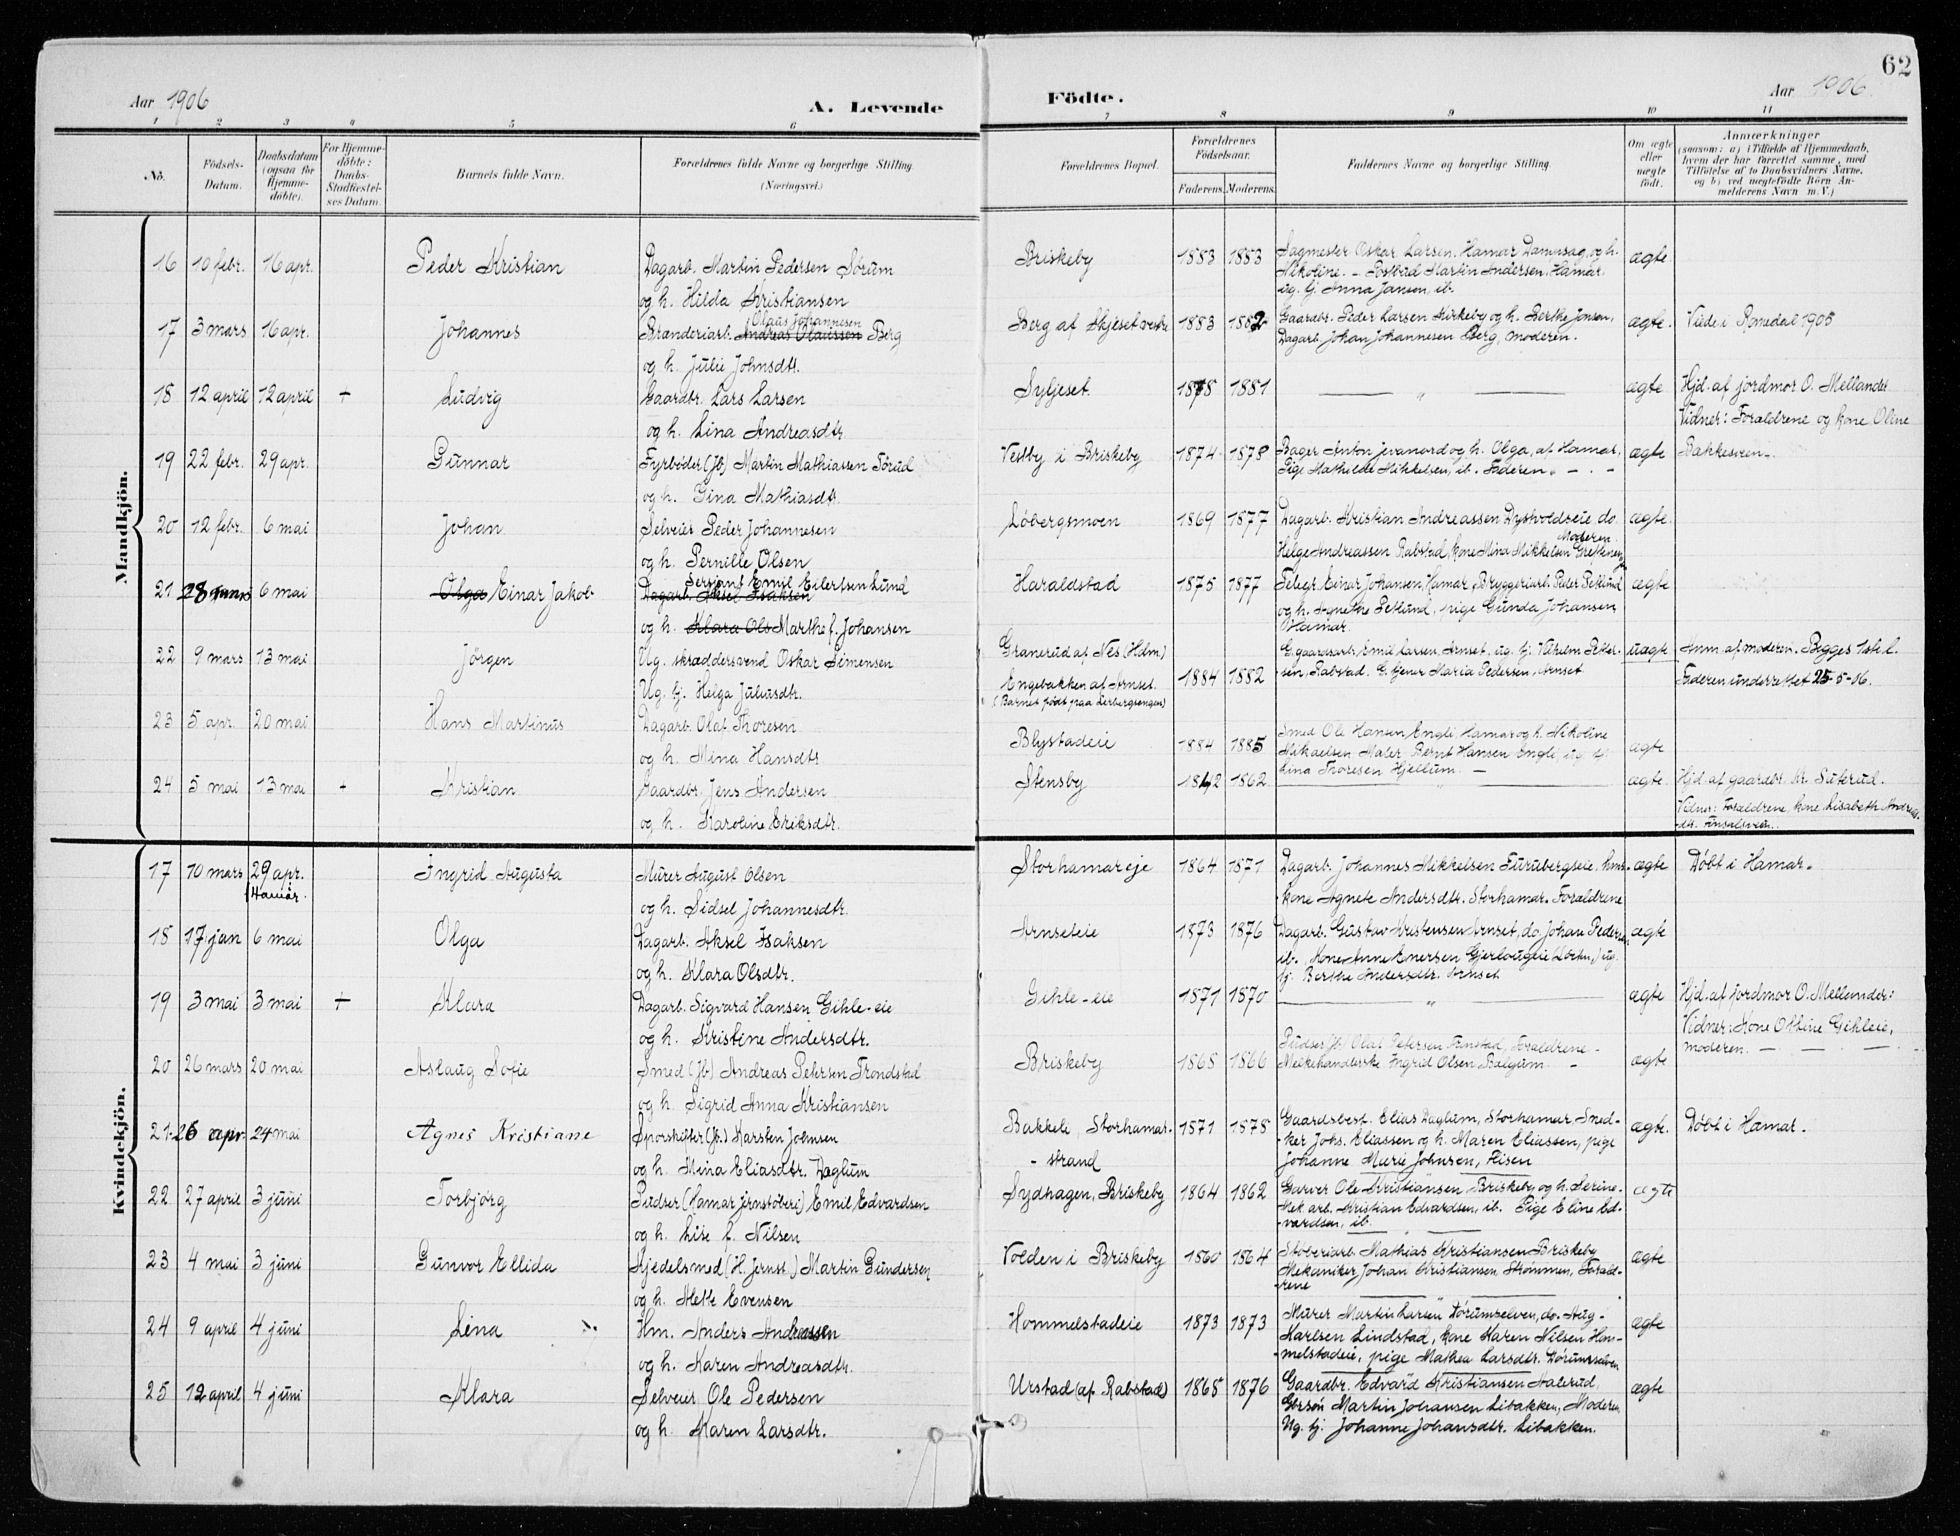 62
Aar 1906
A. Levende
Födte.
Aar 1906.
1 2 3 4 5 6 7 8 9 10 11
No.
Födsels-
Datum.
Daabsdatum
(ogsaa for
Hjemme-
döbte).
For Hjemme-
döbte:
Daabs-
Stadfæstel-
ses Datum.
Barnets fulde Navn.
Forældrenes fulde Navne og borgerlige Stilling.
(Næringsvei.)
Forældrenes Bopæl.
Forældrenes
Födselsaar.
Faderens. Moderens.
Faddernes Navne og borgerlige Stilling.
Om ægte
eller
uægte
födt.
Anmærkninger
(saasom: a) i Tilfælde af Hjemmedaab,
hvem der har forrettet samme, med
Tilföielse af to Daabsvidners Navne,
og b) ved uægtefödte Börn An-
melderens Navn m. V.)
Mandkjön.
16 10 febr. 16 apr. Peder Kristian Dagarb. Martin Pedersen Sørum Briskeby 1883 1883 Sagmester Oskar Larsen, Hamar Dampsag, og h. ægte
og h. Hilda Kristiansen Nikoline. – Postbud Martin Andersen, Hamar.
ug. tj. Anna Jansen, ib.
17 3 mars 16 apr. Johannes Brænderiarb. Andreas Olaussen Olaus Johannesen Berg Berg af Skjeset vestre 1883 1882 Gaardbr. Peder Larsen Kirkeby og h. Berthe Jonsen, ægte. Viede i Romedal 1905
og h. Julie Johnsdtr. Dagarb. Johan Johannesen Berg, moderen.
18 12 april 12 april + Ludvig Gaardbr. Lars Larsen Syljeset. 1878 1881 — „ — ægte Hjd. af jordmor O. Mellander
og h. Lina Andreasdtr. Vidner: Forældrene og kone Oline
19 22 febr. 29 apr. Gunnar Fyrbøder (Jb) Martin Mathiassen Sørud Vestby i Briskeby 1874 1878 Bager Anton Jevanord og h. Olga, af Hamar, ægte
og h. Gina Mathiasdtr. Pige Mathilde Mikkelsen, ib. Faderen. – . –
20 12 febr. 6 mai Johan Selveier Peder Johannesen Løbergsmoen 1869 1877 Dagarb. Kristian Andreassen Dystvoldseie, do. ægte.
og h. Pernille Olsen Helge Andreassen Rabstad, kone Mina Mikkelsen Moderen.
21 28 mars 6 mai Olga Einar Jakob Dagarb. Aksel Isaksen Sersjant Emil Eilertsen Lund Haraldstad 1875 1877 Telegr. Einar Johansen, Hamar, Bryggeriarb. Peder Petlund ægte
og h. Klara Ols Marthe f. Johansen og h. Agnethe Petlund, pige Gunda Johansen
Hamar.
22 9 mars 13 mai Jörgen Ug. skræddersvend Oskar Simensen Granerud af Nes (Hdm) G. gaardsarb. Emil Larsen, Arnset, ug. tj. Vilhelm Peter- uægte Anm. af moderen. Begges 1ste l.
Ug. tj. Helga Juliusdtr. Engebakken af Arnset. 1884 1882 sen, Rabstad. G. tjener Maria Pedersen, Arnset Faderen underrettet 25-5-06.
(Barnet født paa Lerbergsengen)
23 5 apr. 20 mai Hans Martinus Dagarb. Olaf Thoresen Blystadeie 1884 1885 Smed Ole Hansen Engli, Hamar og h. Nikoline ægte
og h. Mina Hansdtr Mikaelsen, Maler Bernt Hansen Engli, ug. tj.
Lina Thoresen Hjellum. —
24 5 mai 13 mai + Kristian Gaardbr. Jens Andersen Stensby 1862 ægte. Hjd. af gaardbr. Kr. Suterud.
og h. Karoline Eriksdtr. Vidner: Forældrene, kone Lisabeth Andreas-
Kvindekjön.
17 10 mars 29 apr. Hamar. Ingrid Augusta Murer August Olsen Storhamareje 1864 1871 Dagarb. Johannes Mikkelsen Furubergseie, ægte Døbt i Hamar.
og h. Sidsel Johannesdtr. kone Agnete Andersdtr. Storhamar. Forældrene
18 17 jan 6 mai Olga Dagarb. Aksel Isaksen Arnseteie 1873 1876 Dagarb. Gustav Kristensen Arnset, do. Johan Pedersen ægte
og h. Klara Olsdtr. ib., Kone Anne Enersen Gjerlougeie (Løten,) ug.
tj. Berthe Andersdtr. Arnset
19 3 mai 3 mai + Klara Dagarb. Sigvard Hansen Gihle-eie Gihle-eie 1871 1870 — „ — ægte Hjd. af jordmor O. Mellander:
og h. Kristine Andersdtr. Vidner: Kone Oline Gihleie,
moderen. — — —
20 26 mars 20 mai Aslaug Sofie Smed (Jb) Andreas Petersen Frondstad Briskeby 1868 1866 Pudser (Jb) Olaf Petersen Finstad, Forældrene – ægte
og h. Sigrid Anna Kristiansen Melkehandlerske Ingrid Olsen
21 26 apr. 24 mai Agnes Kristiane Sporskifter (Jb.) Karsten Johnsen Bakkeli, Storhamar- 1871 1878 Gaardsbest. Elias Daglum, Storhamar Sned- ægte. Døbt i Hamar.
og h. Mina Eliasdtr. Daglum strand ker Johs. Eliassen og h. Maren Eliassen, pige
Johanne Marie Johnsen,
22 27 april 3 juni Torbjørg Pudser (Hamar jernstøberi) Emil Edvardsen Sydhagen, Briskeby 1864 1862 Garver Ole Kristiansen Briskeby og h. Serine. ægte
og h. Lise f. Nilsen Mek. arb. Kristian Edvardsen, ib. Pige Eline Ed-
vardsen, ib.
23 4 mai 3 juni Gunvor Ellida Kjedelsmed (H. Jernst.) Martin Gundersen Volden i Briskeby 1860 1864 Støberiarb. Mathias Kristiansen Briskeby ægte
og h. Mette Evensen Mekaniker Johan Kristiansen, Strømmen, Foræld-
rene
24 9 april 4 juni Lina Hm. Anders Andreassen Hommelstadeie 1873 1873 Murer Martin Larsen Dørumselven, do. Aug. ægte
og h. Karen Andreasdtr. Karlsen Lindstad, kone Karen Nilsen Hom-
melstadeie, pige Mathea Larsdtr. Dørumselven
25 12 april 4 juni Klara Selveier Ole Pedersen Urstad (af Rabstad) 1865 1876 Gaardbr. Edvard Kristiansen ægte
og h. Maren Larsdtr. Grdsøn Martin Johansen Libakken, Moderen
Ug. tj. Johanne Johansdtr. Libakken.